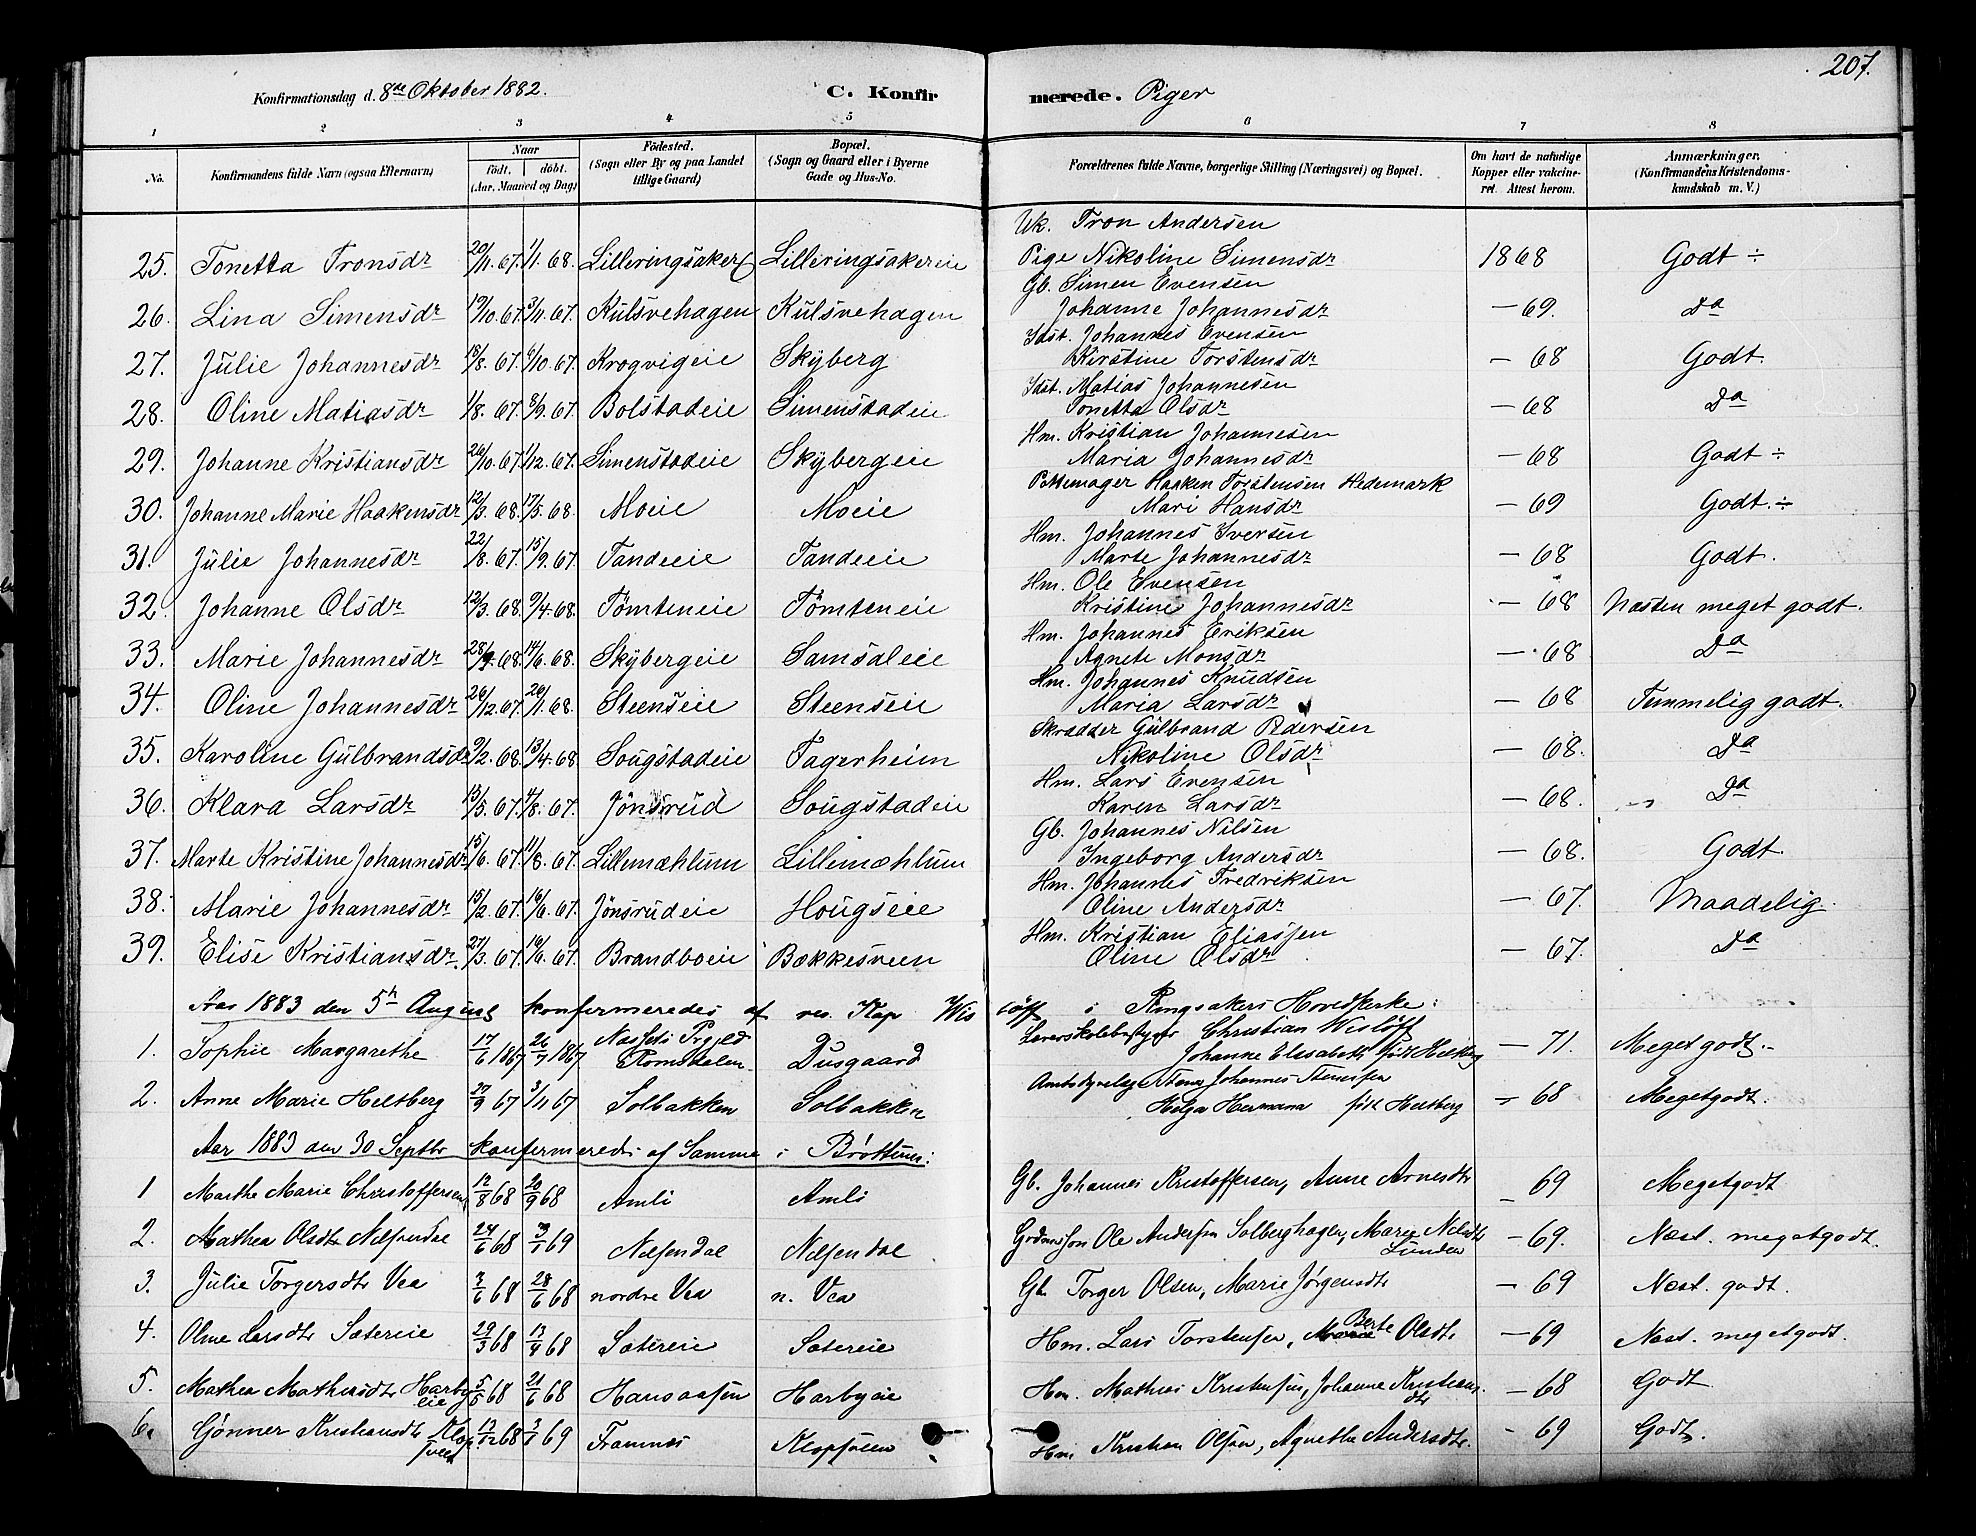 207.
Konfirmationsdag d. 8de Oktober 1882.
C. Konfirmerede. Piger
1 2 3 4 5 6 7 8
No.
Konfirmandens fulde Navn (ogsaa Efternavn)
Naar
født. døbt.
(Aar, Maaned og Dag)
Födested.
(Sogn eller By og paa Landet
tillige Gaard)
Bopæl.
(Sogn og Gaard eller i Byerne
Gade og Hus-No.
Forældrenes fulde Navne, borgerlige Stilling (Næringsvei) og Bopæl.
Om havt de naturlige
Kopper eller vakcine-
ret. Attest herom.
Anmærkninger.
(Konfirmandens Kristendoms-
kundskab m. V.)
Uk. Tron Andersen
25. Tonetta Tronsdr 20/11. 67. 1/1. 68. Lilleringsakere Lilleringsakereie Pige Nikoline Simensdr 1868 Godt ÷
Gb. Simen Evensen
26. Lina Simensdr 19/10. 67. 3/11. 67. Kulsvehagen Kulsvehagen Johanne Johannesdr — 69. Da
Idst. Johannes Evensen
27. Julie Johannesdr 18/8. 67. 6/10. 67. Krogvigeie Skyberg Kirstine Torstensdr — 68 Godt.
Idst. Matias Johannesen
28. Oline Matiasdr 1/8. 67. 8/9. 67. Bolstadeie Simenstadeie Tonetta Olsdr — 68 Da
Hm. Kristian Johannesen
29. Johanne Kristiansdr 26/10. 67. 1/12. 67. Simenstadeie Skybergeie Maria Johannesdr — 68 Godt ÷
Pottemager Haaken Torstensen Hedemark
30. Johanne Marie Haakensdr 12/3. 68. 17/5. 68. Moeie Moeie Mari Hansdr — 69 Godt. ÷
Hm. Johannes Iversen
31. Julie Johannesdr 22/8. 67. 15/9. 67. Tandeeie Tandeeie Marte Johannesdr — 68 Godt.
Hm. Ole Evensen
32. Johanne Olsdr 12/3. 68. 9/4. 68. Tømteneie Tømteneie Kristine Johannesdr — 68 Næsten meget godt.
Hm. Johannes Eriksen
33. Marie Johannesdr 68. 14/6. 68. Skybergeie Samsaleie Agnete Monsdr — 68 Da
Hm. Johannes Knudsen
34. Oline Johannesdr 26/12. 67. 26/1. 68. Steenseie Steenseie Maria Larsdr — 68 Temmelig godt.
Skrædder Gulbrand Pedersen
35. Karoline Gulbrandsdr 9/2. 68. 13/4. 68 Sougstadeie Fagerheim Nikoline Olsdr — 68. Da
Hm. Lars Evensen
36. Klara Larsdr 13/5. 67. 4/8. 67. Jønsrud Sougstadeie Karen Larsdr — 68. Da
Gb. Johannes Nilsen
37. Marte Kristine Johannesdr 15/6. 67. 11/8. 67. Lillemæhlum Lillemæhlum Ingeborg Andersdr — 68. Godt.
Hm. Johannes Fredriksen
38. Marie Johannesdr 15/2. 67. 16/6. 67. Jønsrudeie Hougseie Oline Andersdr — 67. Maadelig.
Hm. Kristian Eliassen
39. Elise Kristiansdr. 27/3. 67. 16/6. 67. Brandboeie Bækkesveen Oline Olsdr — 67. Da
Aar 1883 den 5te August konfermeredes af res. Kap Wisløff i Ringsakers Hovedkirke:
1. Sophie Margarethe 17/6 1867 26/7 1867 Nassets Prgjld Romsdalen Dusgaard Christian Wisløff — 71. Megetgodt.
Johanne Elisabeth født Heltberg
2. Anne Marie Heltberg 29/9 67 3/11 67 Solbakken Solbakken Johannes Stenersen — 68 Megetgodt.
Helga Hermana født Heltberg
Aar 1883 den 30 Septbr konfermeredes af Samme i Brøttum:
1 Marthe Marie Christoffersen 12/8 68 20/9 68 Amli Amli Gb. Johannes Kristoffersen, Anne Arnesdtr — 69 Megetgodt
2. Mathea Olsdtr Nilsendal 24/6 68 3/1 69 Nilsendal Nilsendal Ole Andersen Solberghagen, Marie Nilsdtr Lunden — 69. Næst. megetgodt.
3. Julie Torgersdtr Vea 2/6 68 28/6 68 nordre Vea n. Vea Gb. Torger Olsen, Marie Jørgensdtr — 69 Næst. godt.
4. Oline Larsdtr Sætereie 29/3 68 13/4 68 Sætereie Sætereie Hm. Lars Torstensen, Berte Olsdtr — 69 Næst. megetgodt.
5. Mathea Mathisdtr Harbyeie 5/5 68 21/6 68 Hansaasen Harbyeie Hm. Mathias Kristensen, Johanne Kristiansdtr — 68 Godt
6. Gønner Kristiansdtr Klopsveen 13/12 68 3/1 69 Framnæs Klopsveen Hm. Kristian Olsen, Agnethe Andersdtr. - 69 Godt.